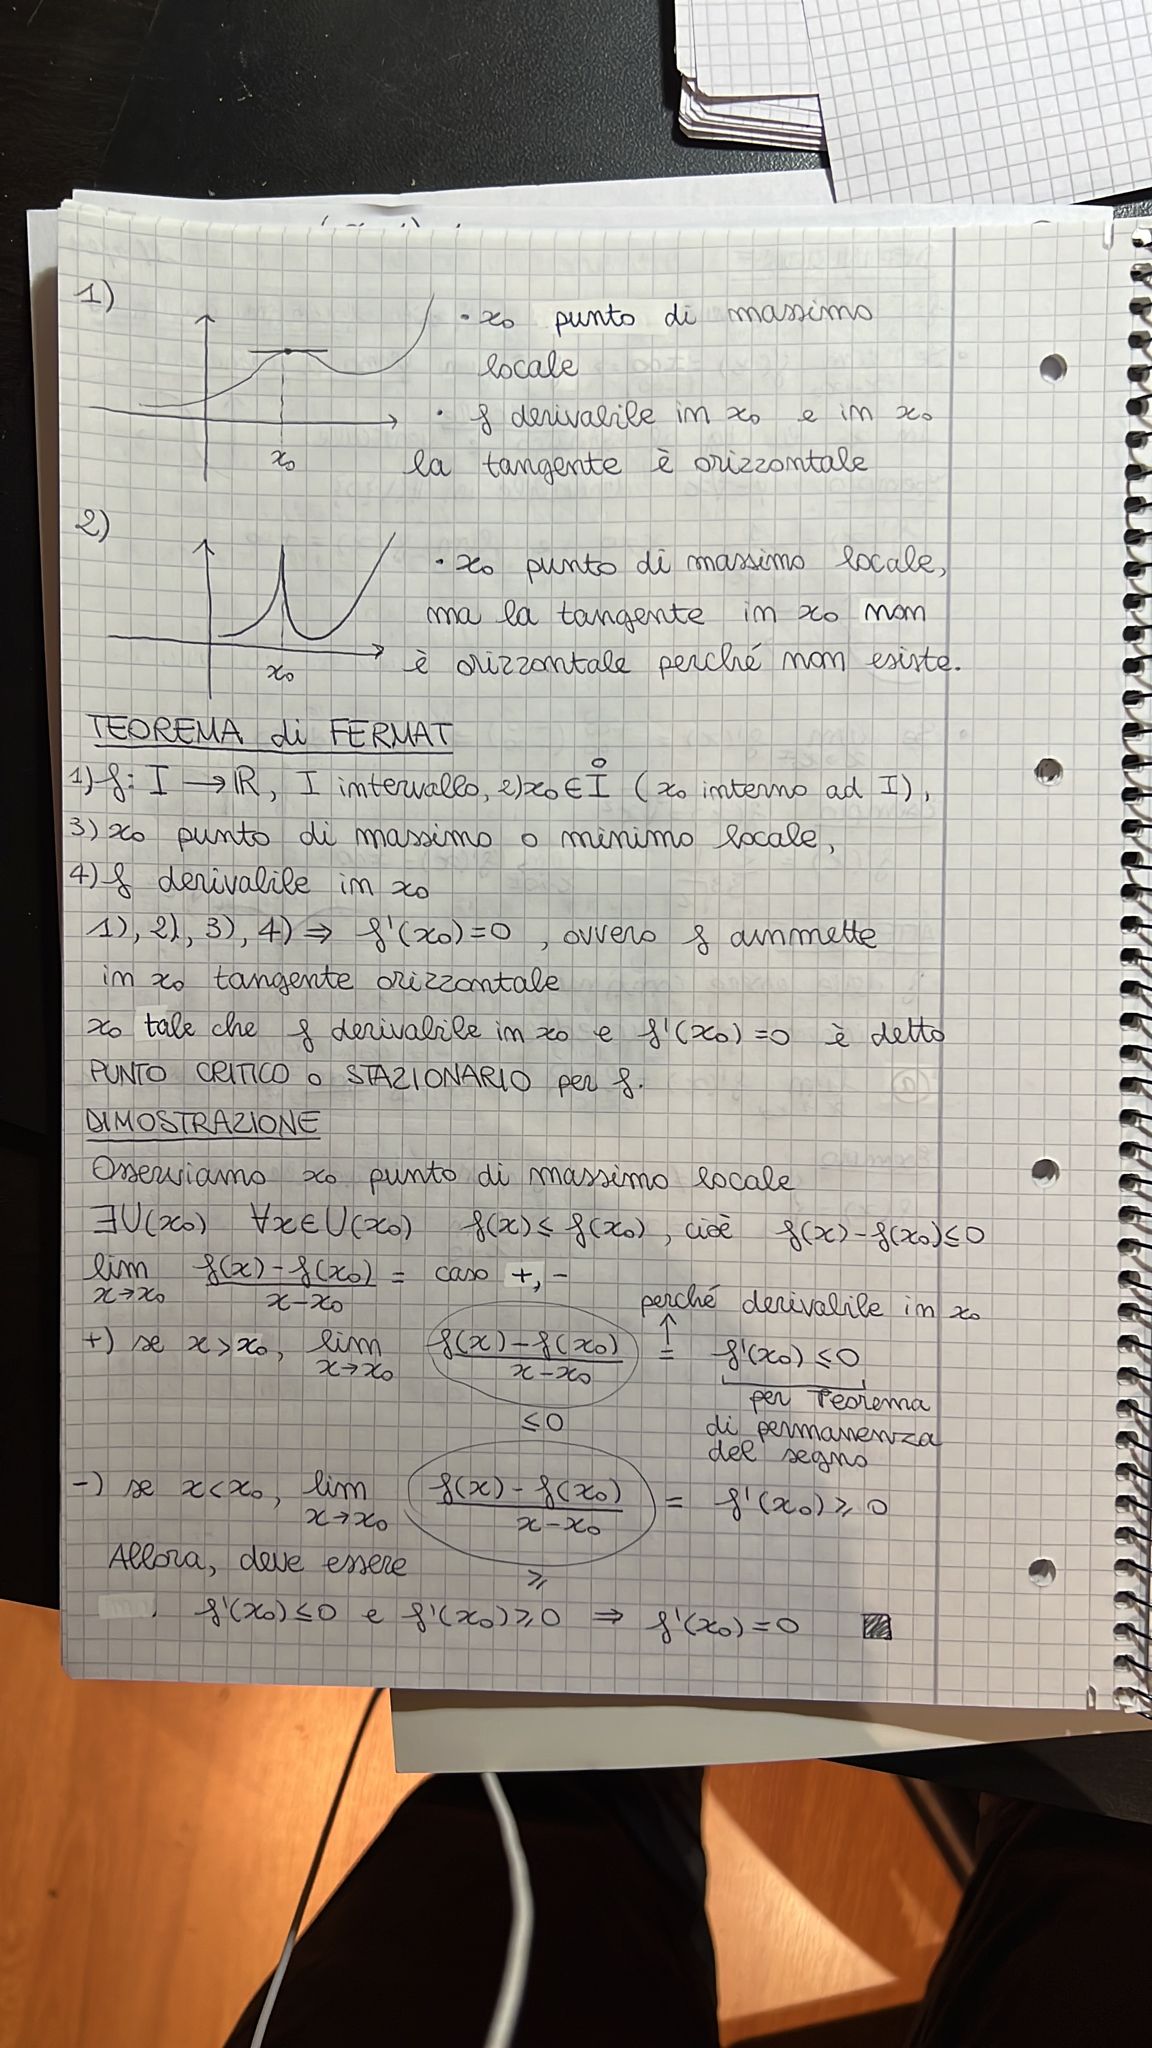 1)
• x₀ punto di massimo
locale
• f derivabile in x₀ e in x₀
la tangente è orizzontale
x₀
2)
• x₀ punto di massimo locale,
ma la tangente in x₀ non
è orizzontale perché non esiste.
x₀
TEOREMA di FERMAT
1) f: I → ℝ, I intervallo, 2) x₀ ∈ I̊ (x₀ interno ad I),
3) x₀ punto di massimo o minimo locale,
4) f derivabile in x₀
1), 2), 3), 4) ⇒ f'(x₀)=0, ovvero f ammette
in x₀ tangente orizzontale
x₀ tale che f derivabile in x₀ e f'(x₀)=0 è detto
PUNTO CRITICO o STAZIONARIO per f.
DIMOSTRAZIONE
Osserviamo x₀ punto di massimo locale
∃U(x₀) ∀x∈U(x₀) f(x) ≤ f(x₀), cioè f(x)-f(x₀)≤0
lim x→x₀ (f(x)-f(x₀))/(x-x₀) = caso +,-
perché derivabile in x₀
↑
+) se x>x₀, lim x→x₀ (f(x)-f(x₀))/(x-x₀) = f'(x₀) ≤0
≤0
per Teorema
di permanenza
del segno
-) se x<x₀, lim x→x₀ (f(x)-f(x₀))/(x-x₀) = f'(x₀) ≥ 0
≥
Allora, deve essere
f'(x₀)≤0 e f'(x₀)≥0 ⇒ f'(x₀)=0